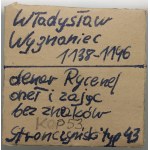 Władysław
Wygnaniec
1138-1146
denar Rycerz
orzeł i zając
bez znaków
KOP 53
Stronczyński typ 43